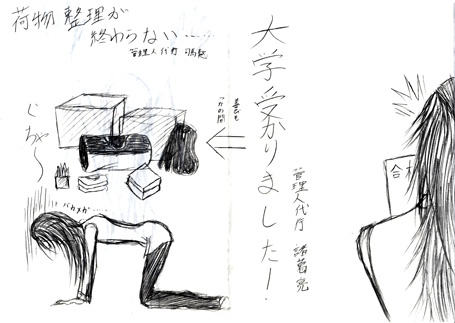 大学受かりました!
管理人代行 諸葛亮
合
喜びも
つかの間
荷物整理が
終わらない……
管理人代行 司馬懿
ぐちゃ～
バカメガ……